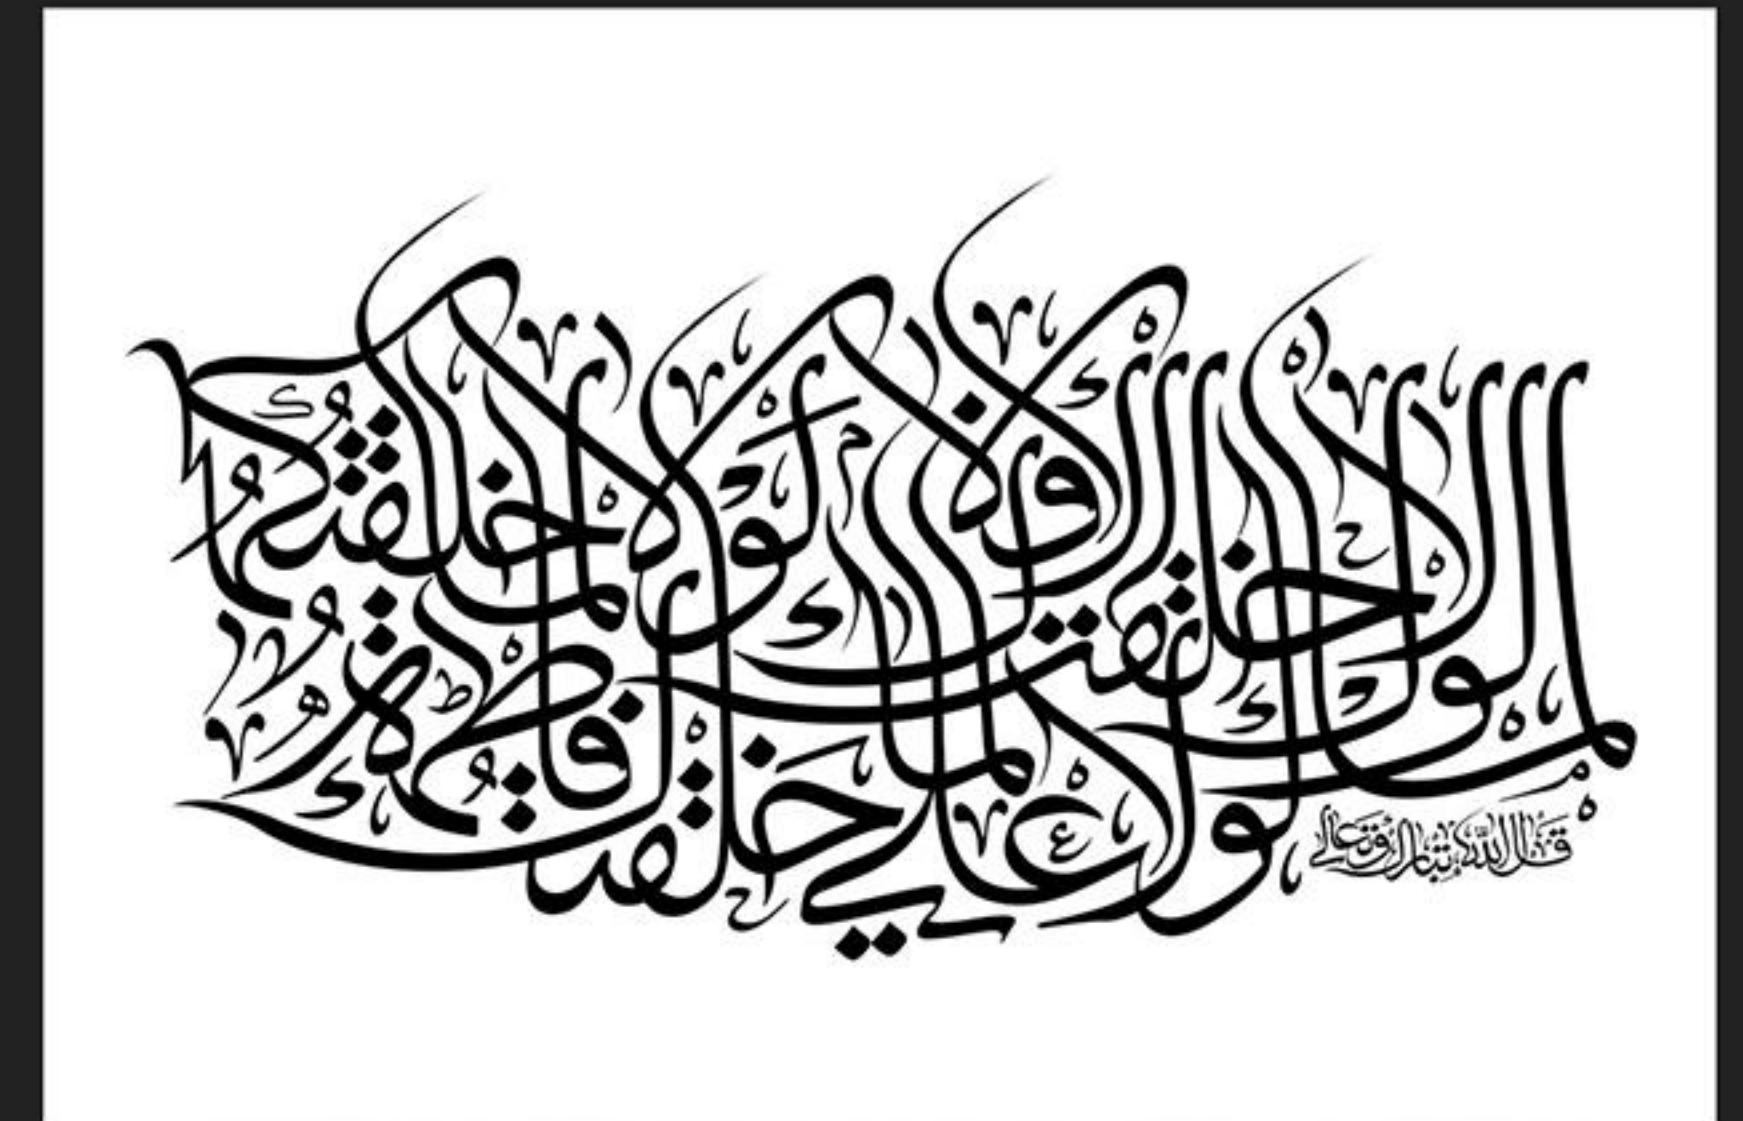 قال الله تبارك وتعالى
لولاك لما خلقت الأفلاك
ولولا علي لما خلقتك
ولولا فاطمة لما خلقتكما